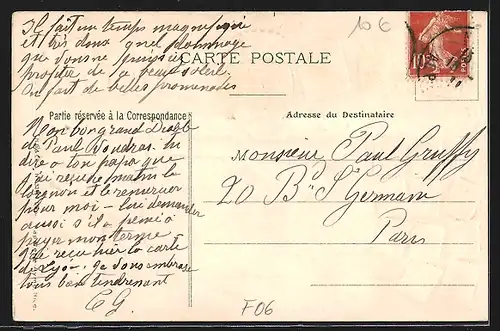 Il fait un temps magnifique
et très doux quel dommage
que vous ne puissiez
profiter de ce beau soleil.
On fait de belles promenades
10 €
CARTE POSTALE
10
Partie réservée à la Correspondance
Adresse du Destinataire
Mon bon grand Diable
de Paul voudras tu
dire à ton papa que
j'ai reçu ce matin le
lorgnon et le remercier
pour moi - lui demander
aussi s'il a pensé à
payer mon terme
J'ai reçu hier la carte
de Lyon. Je vous embrasse
tous bien tendrement
E G.
Monsieur Paul Gruffy
20 Bd St Germain
Paris
F06